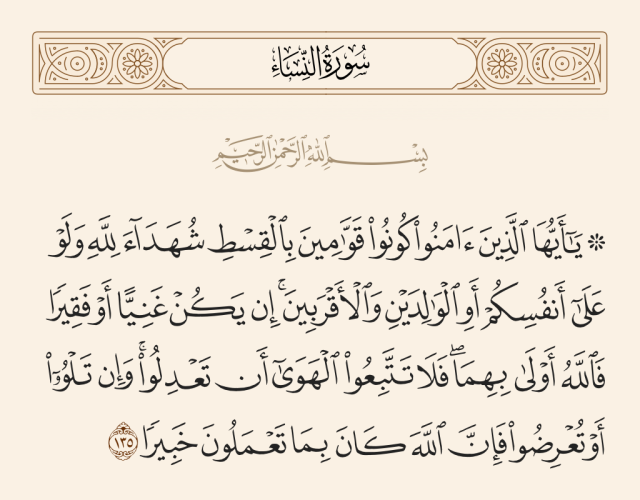 سُورَةُ النِّسَاءِ
بِسْمِ ٱللَّهِ ٱلرَّحْمَٰنِ ٱلرَّحِيمِ
۞ يَٰٓأَيُّهَا ٱلَّذِينَ ءَامَنُوا۟ كُونُوا۟ قَوَّٰمِينَ بِٱلْقِسْطِ شُهَدَآءَ لِلَّهِ وَلَوْ
عَلَىٰٓ أَنفُسِكُمْ أَوِ ٱلْوَٰلِدَيْنِ وَٱلْأَقْرَبِينَ ۚ إِن يَكُنْ غَنِيًّا أَوْ فَقِيرًا
فَٱللَّهُ أَوْلَىٰ بِهِمَا ۖ فَلَا تَتَّبِعُوا۟ ٱلْهَوَىٰٓ أَن تَعْدِلُوا۟ ۚ وَإِن تَلْوُۥٓا۟
أَوْ تُعْرِضُوا۟ فَإِنَّ ٱللَّهَ كَانَ بِمَا تَعْمَلُونَ خَبِيرًا ١٣٥